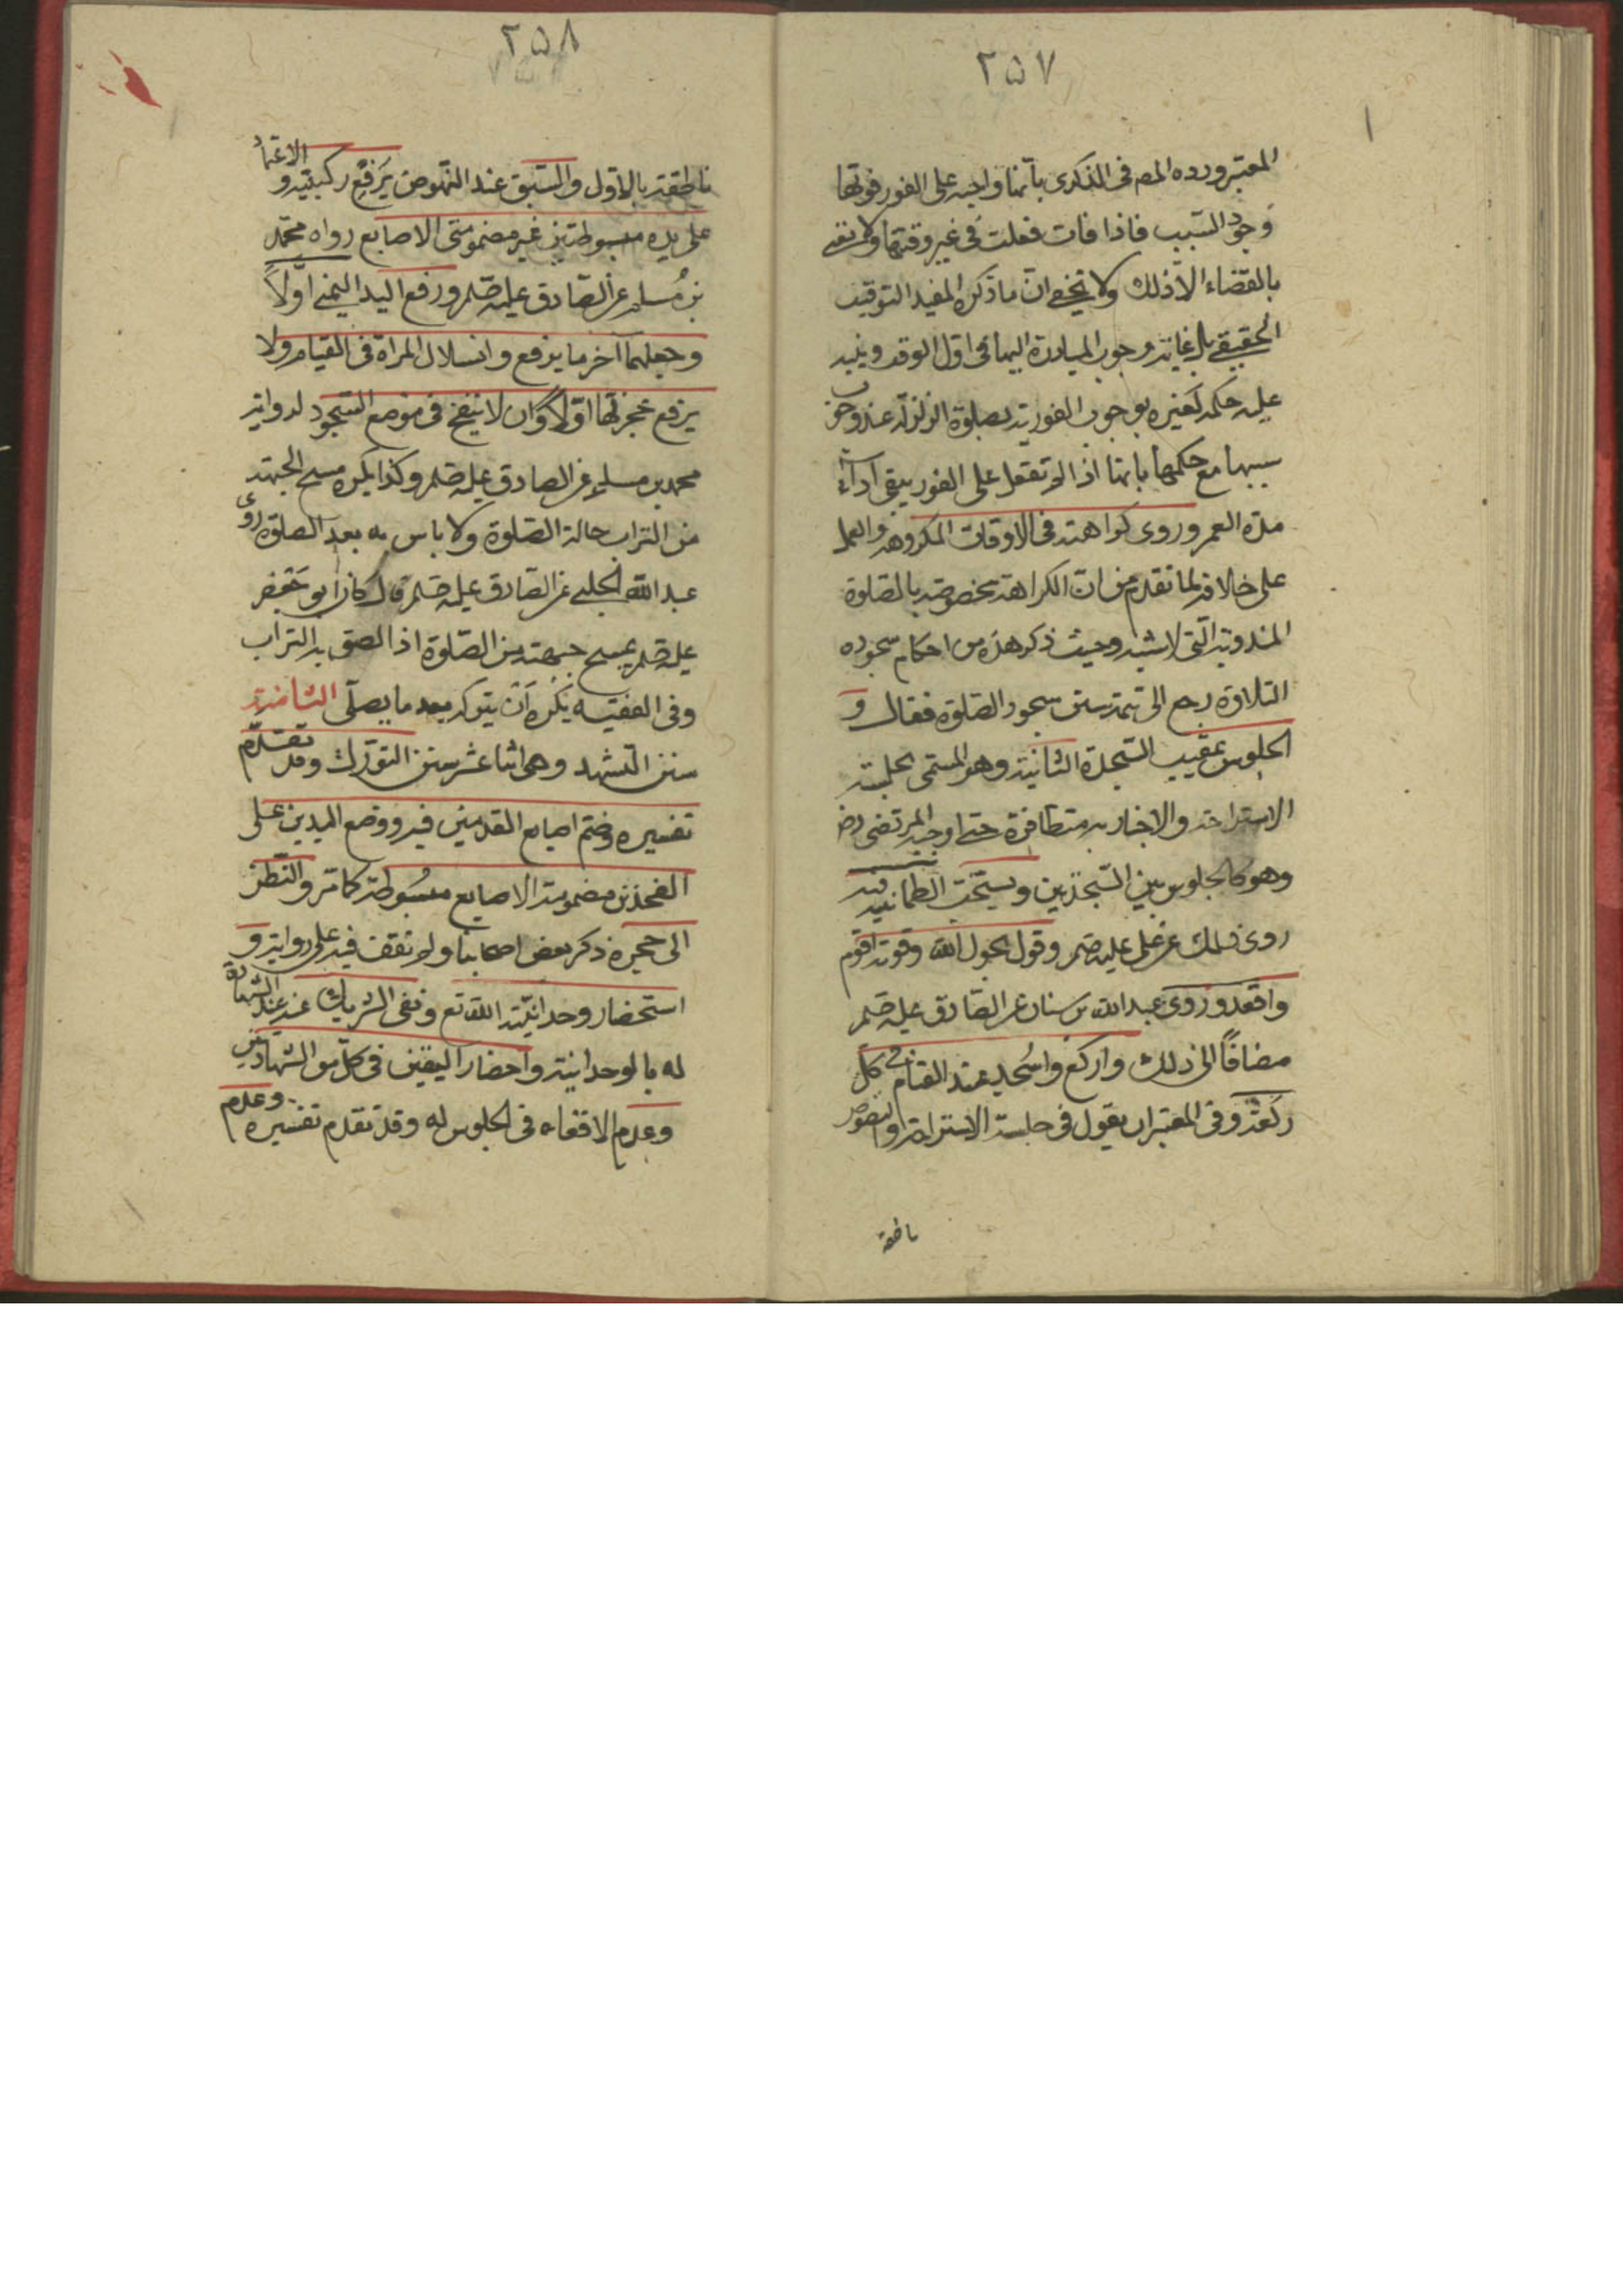 ٢٥٧
المعتبر ورده المص فى الذكرى بانها واجبة على الفور فوقتها
وجود السبب فاذا فات فعلت فى غير وقتها ولا نعنى
بالقضاء الا ذلك ولا يخفى ان ما ذكره لا يفيد التوقيت
الحقيقى بل غايته وجوب المبادرة اليها فى اول الوقت
عليه حكمه كغيره بوجوب الفورية بصلوة الزلزلة عند وجوب
سببها مع حكمها بانها اذا لم تفعل على الفور يبقى اداء
مدة العمر وروى كراهته فى الاوقات المكروهة والعمل
على خلافه لما تقدم من ان الكراهة مخصوصة بالصلوة
المندوبة التى لا سبب وحيث ذكر هذه من احكام سجوده
التلاوة رجع الى تتمة سنن سجود الصلوة فقال و
الجلوس عقيب السجدة الثانية وهو المسمى بجلسة
الاستراحة والاخبار به متظافرة حتى اوجبه المرتضى رض
وهو كالجلوس بين السجدتين ويستحب الطمانينة فيه
روى ذلك عن على عليه صلم وقول بحول الله وقوته اقوم
واقعد وروى عبد الله بن سنان عن الصادق عليه صلم
مضافًا الى ذلك واركع واسجد عند القيام فى كل
ركعة وفى المعتبر ان يقول فى جلسة الاستراحة والنصوص
ناطقة
٢٥٨
ناطقة بالاول والسبق عند النهوض يرفع ركبتيه و الاعتماد
على يديه مبسوطتين غير مضمومتى الاصابع رواه محمد
بن مسلم عن الصادق عليه صلم ورفع اليد اليمنى اولًا
وجعلهما آخر ما يرفع وانسلال المراة فى القيام ولا
يرفع عجزتها اولًا وان لا ينفخ فى موضع السجود لرواية
محمد بن مسلم عن الصادق عليه صلم وكذا يكره مسح الجبهة
من التراب حالة الصلوة ولا باس به بعد الصلوة روى
عبد الله الحلبى عن الصادق عليه صلم قال كان ابو جعفر
عليه صلم يمسح جبهته من الصلوة اذا الصق به التراب
وفى الفقيه يكره ان يتركه بعد ما يصلى الثامنة
سنن التشهد وهى اثنا عشر سنن التورك وقد تقدم
تفسيره وضم اصابع القدمين فيه ووضع اليدين على
الفخذين مضمومة الاصابع مبسوطة كما مر والنظر
الى حجره ذكر بعض اصحابنا ولم نقف فيه على رواية و
استحضار وحدانية الله تع ونفى الشريك عنه عند الشهادة
له بالوحدانية واحضار اليقين فى كل من الشهادتين
وعدم الاقعاء فى الجلوس له وقد تقدم تفسيره وعدم